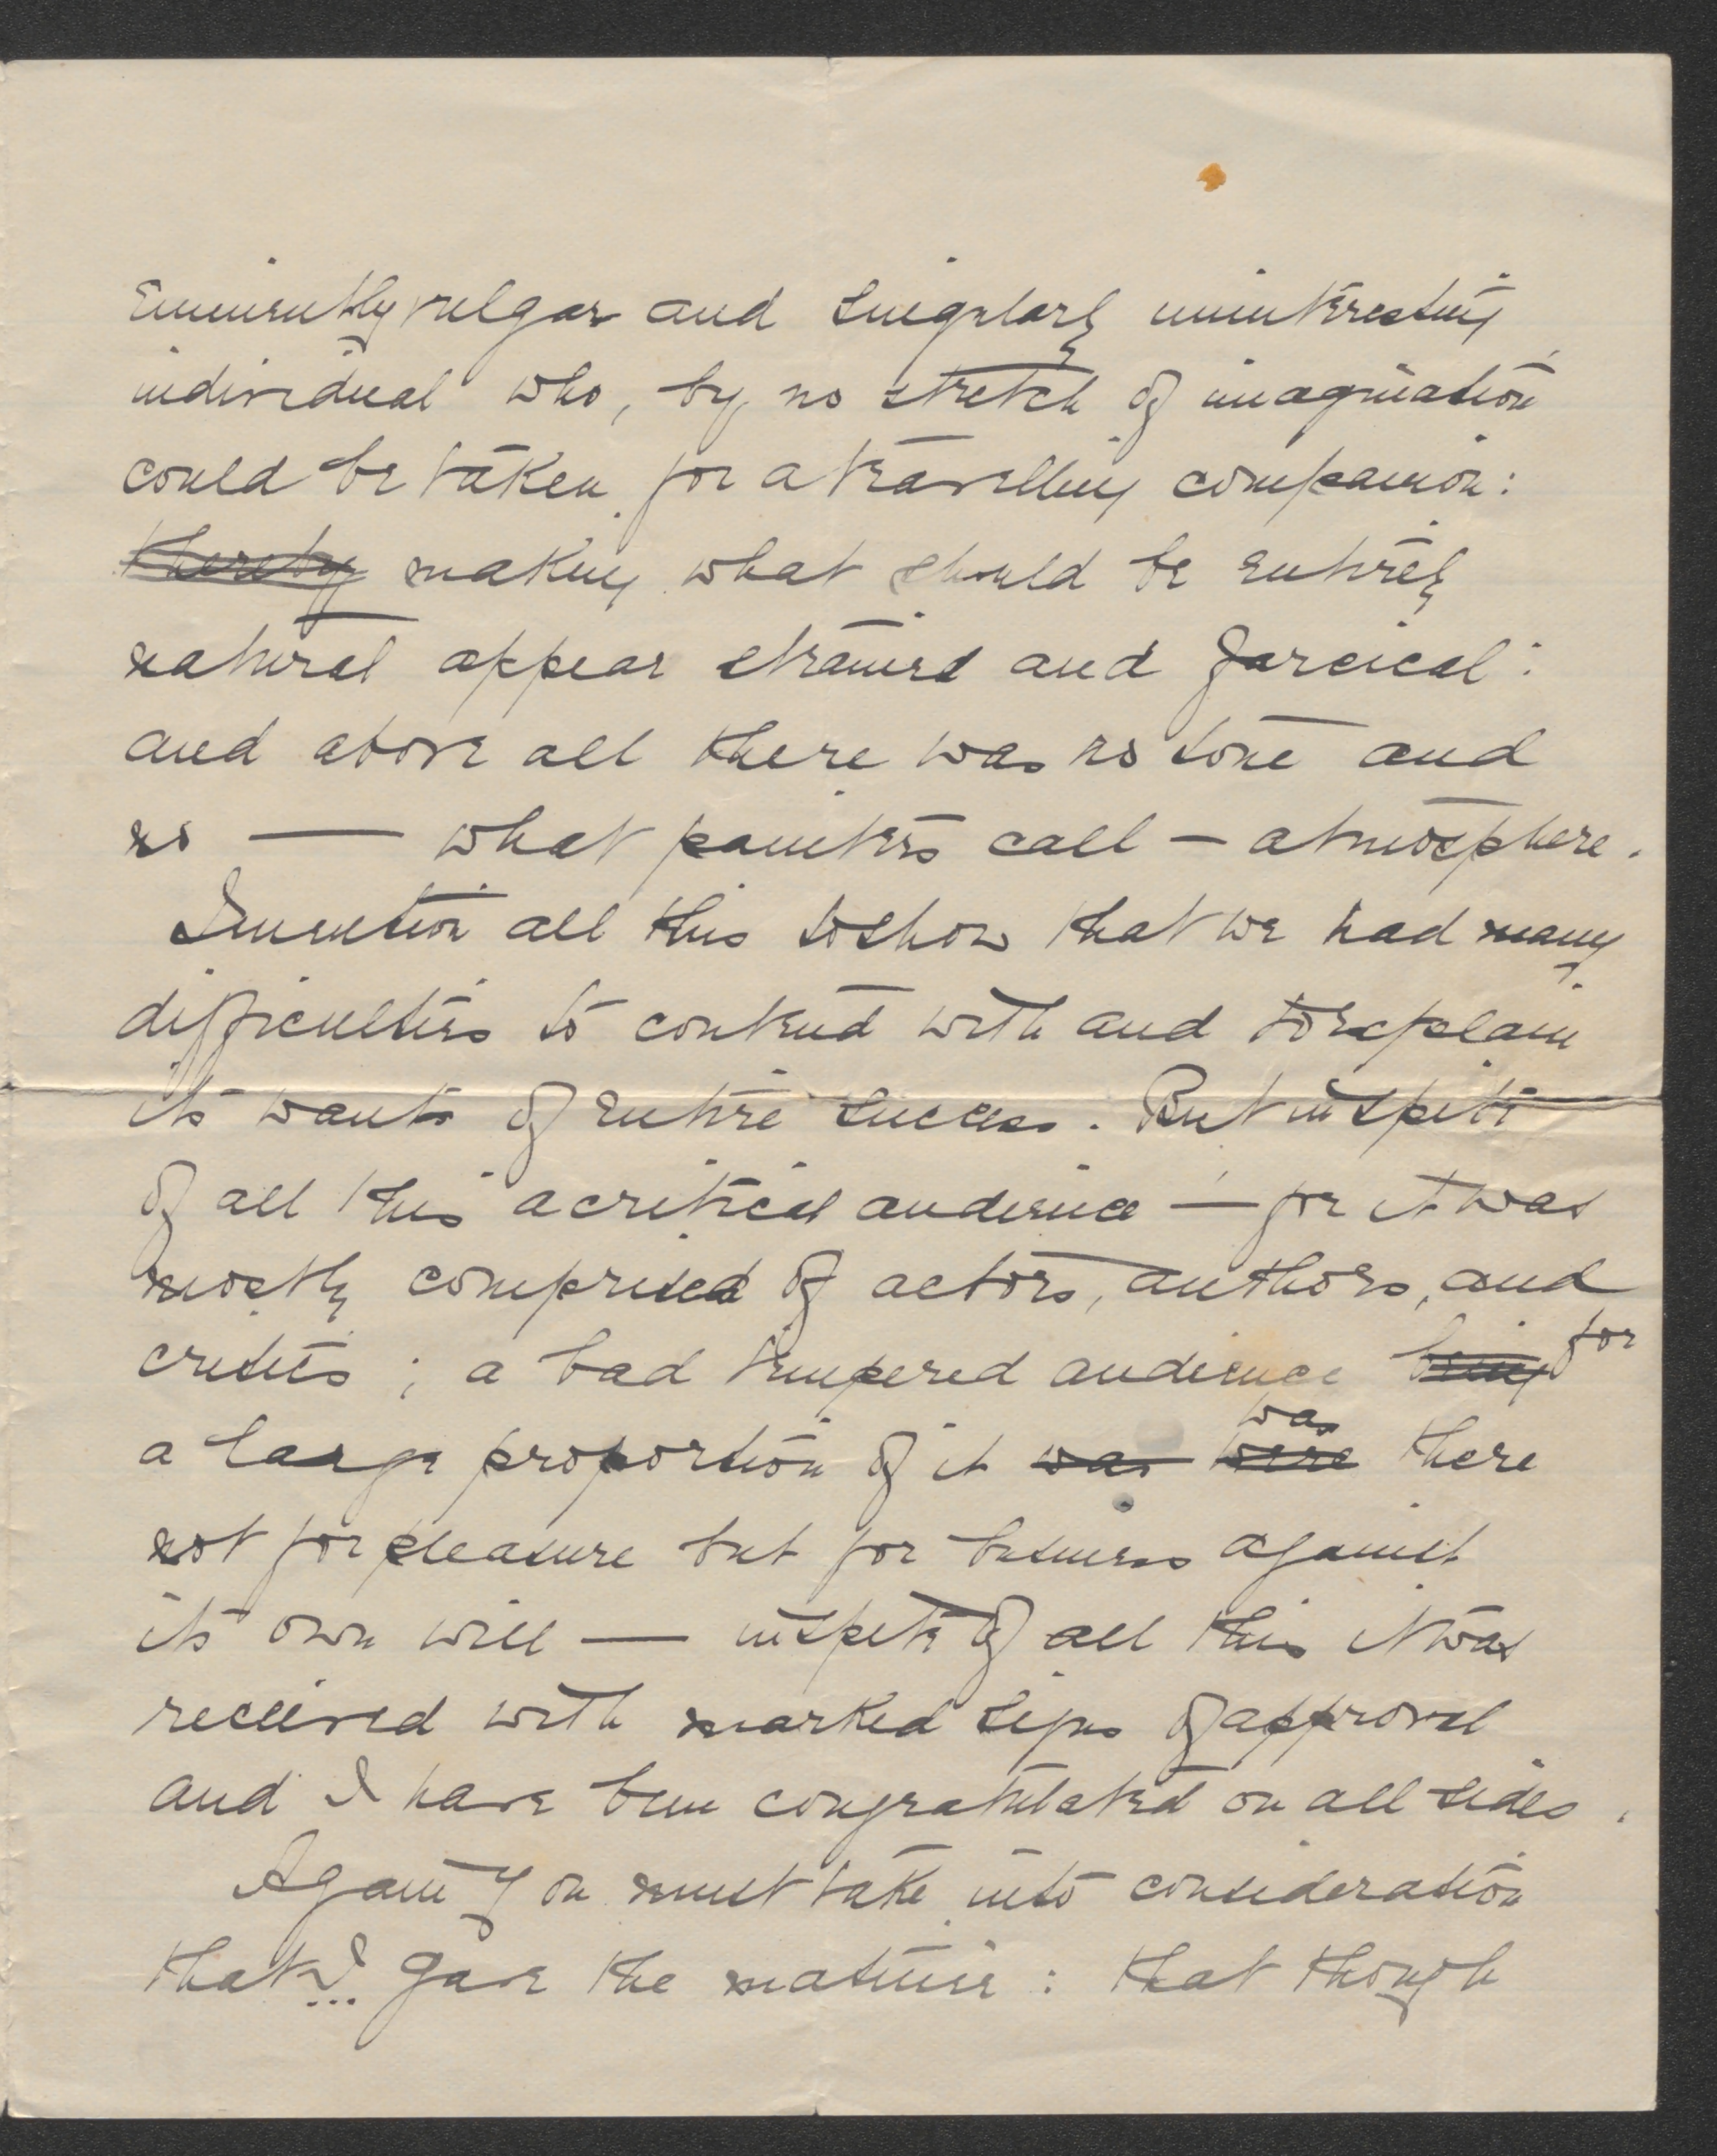 Eminently vulgar and singularly uninteresting
individual who, by no stretch of imagination
could be taken for a travelling companion:
thereby making what should be entirely
natural appear strained and farcical:
and above all there was no tone and
no — what painters call — atmosphere.
I mention all this to show that we had many
difficulties to contend with and to explain
its wants of entire success. But in spite
of all this a critical audience — for it was
mostly comprised of actors, authors, and
critics; a bad tempered audience being for
a large proportion of it was were was there
not for pleasure but for business against
its own will — in spite of all this it was
received with marked signs of approval
and I have been congratulated on all sides.
Again you must take into consideration
that I gave the matinée: that though